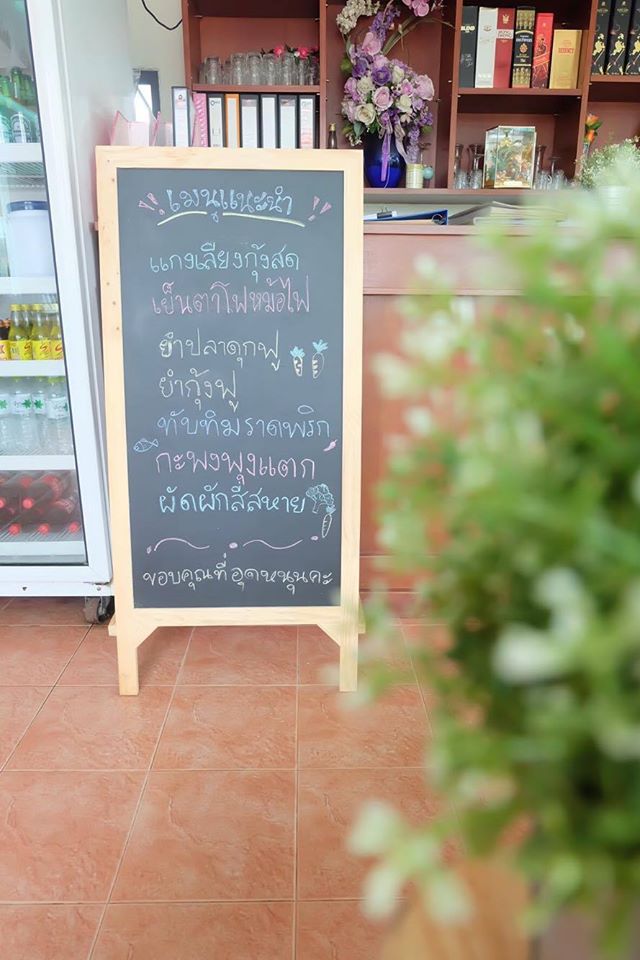 เมนูแนะนำ
แกงเลียงกุ้งสด
เย็นตาโฟหม้อไฟ
ยำปลาดุกฟู
ยำกุ้งฟู
ทับทิมราดพริก
กะพงพุงแตก
ผัดผักสี่สหาย
ขอบคุณที่อุดหนุนคะ